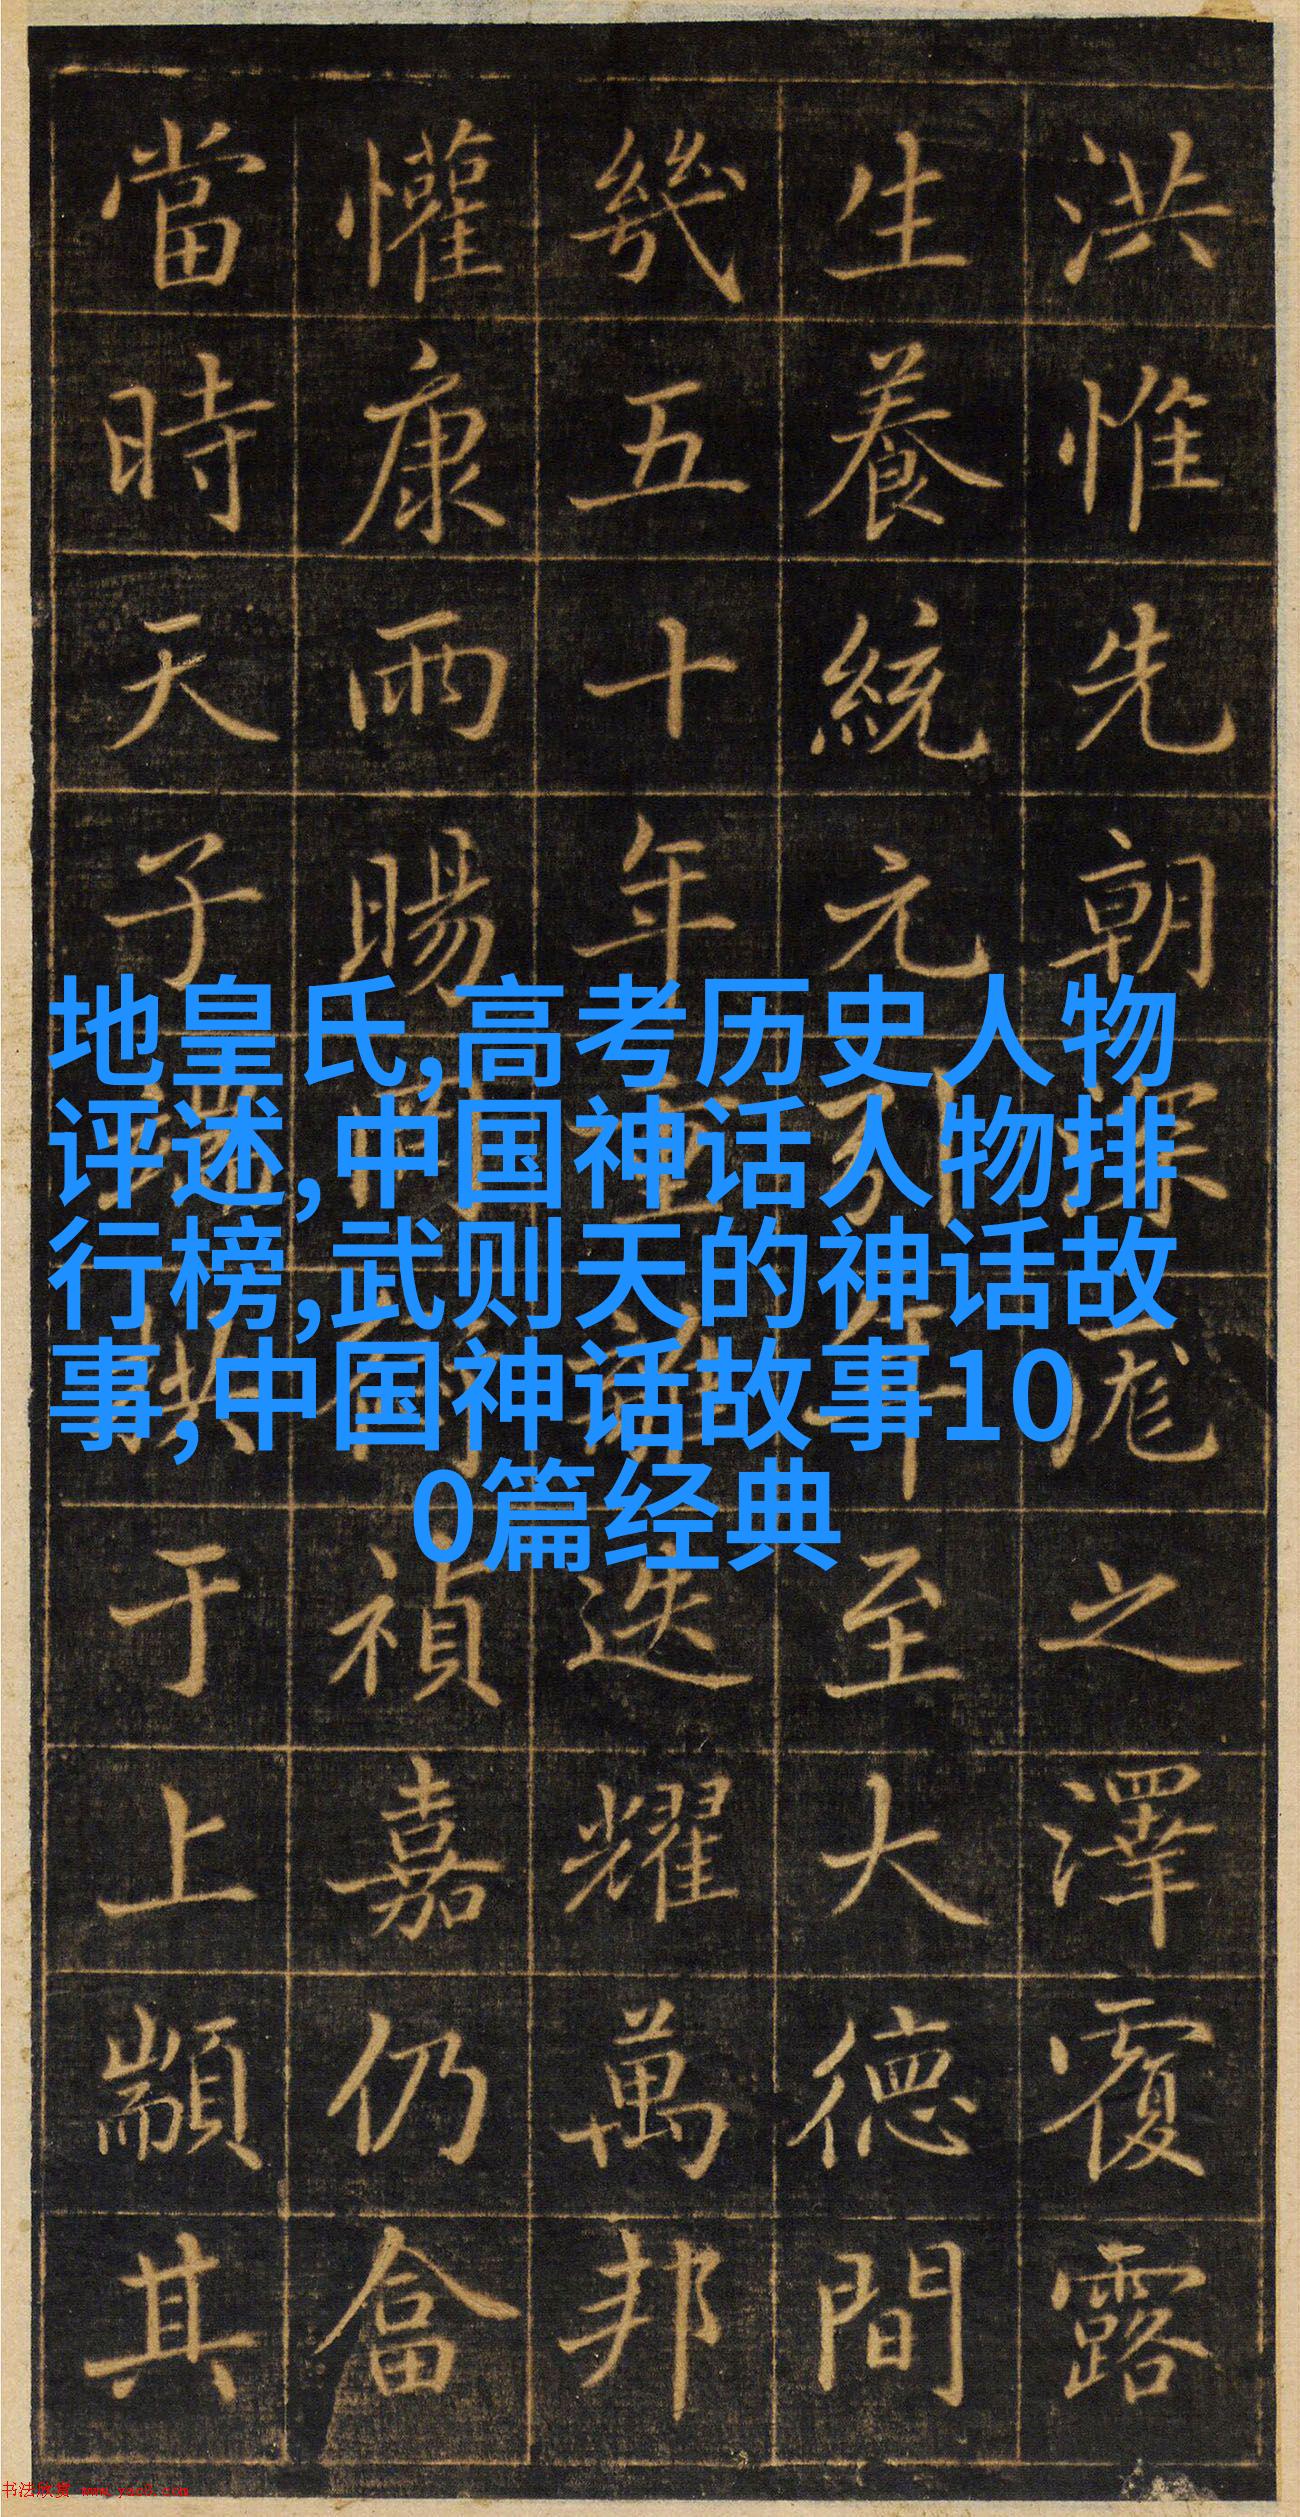 洪惟先朝深厖之澤覆露
生養統元引年至大德間
幾五十年重迭耀萬邦
懽康雨暘時禎嘉仍畣
當時天子拱于上顓其
地皇氏,高考历史人物
评述,中国神话人物排
行榜,武则天的神话故
事,中国神话故事10
0篇经典
书法欣赏 www.yac8.com